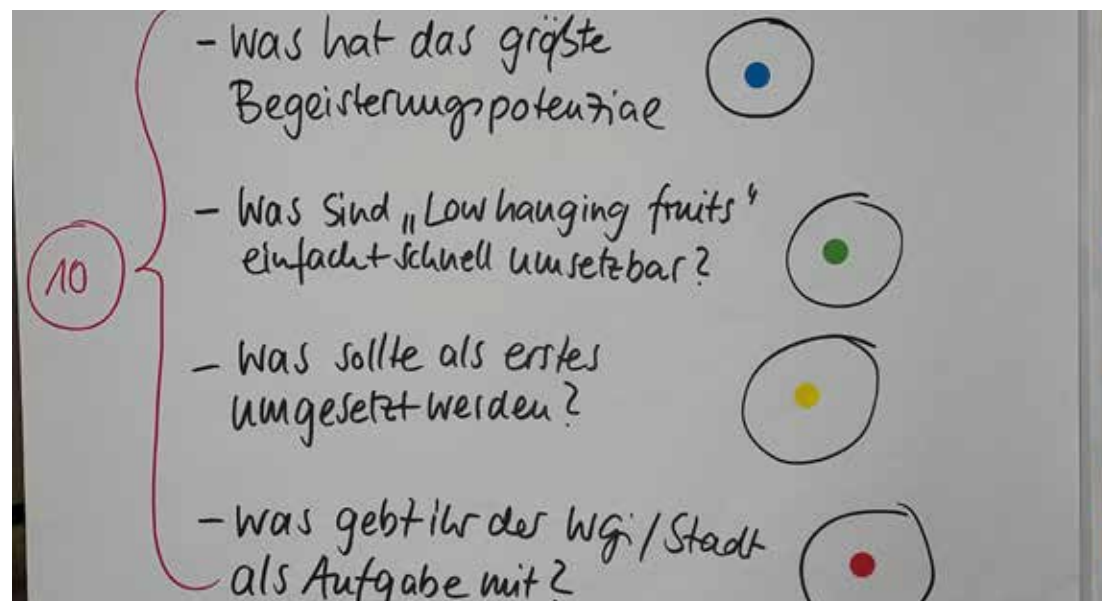 - Was hat das größte
Begeisterungspotenzial
- Was sind „Low hanging fruits“
einfach + schnell umsetzbar?
10
- Was sollte als erstes
umgesetzt werden?
- Was gebt ihr der WGi/Stadt
als Aufgabe mit?